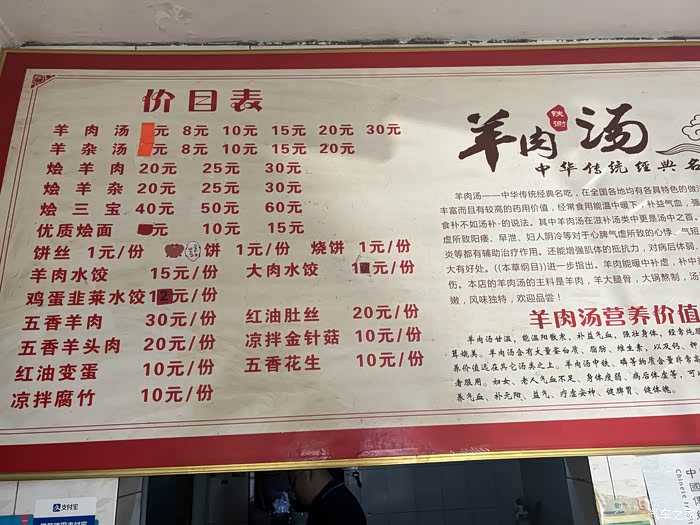 价目表
羊肉汤 元 8元 10元 15元 20元 30元
羊杂汤 元 8元 10元 15元 20元
烩羊肉 20元 25元 30元
烩羊杂 20元 25元 30元
烩三宝 40元 50元 60元
优质烩面 元 10元 15元
饼丝 1元/份 饼 1元/份 烧饼 1元/份
羊肉水饺 15元/份 大肉水饺 元/份
鸡蛋韭菜水饺 元/份
五香羊肉 30元/份 红油肚丝 20元/份
五香羊头肉 20元/份 凉拌金针菇 10元/份
红油变蛋 10元/份 五香花生 10元/份
凉拌腐竹 10元/份
羊肉汤
中华传统经典名
羊肉汤——中华传统经典名吃，在全国各地均有各具特色的做
丰富而且有较高的药用价值，经常食用能温中暖下，补益气血，强
食补不如汤补-的说法。其中羊肉汤在滋补汤类中更是汤中之首。
虚所致阳痿、早泄、妇人阴冷等对于心脾气虚所致的心悸、气短
炎等都有辅助治疗作用。还能增强肌体的抵抗力，对病后体弱、
大有好处。((本草纲目))进一步指出。羊肉能暖中补虚，补中
伤。本店的羊肉汤的主料是羊肉，羊大腿骨，大锅熬制，汤
嫩，风味独特，欢迎品尝！
羊肉汤营养价值
羊肉汤甘温，能温阳散寒，补益气血，强壮身体，经常炖
茸媲美。羊肉汤含有大量蛋白质、脂肪、维生素，以及钙、钾
养价值远在其它汤类之上。羊肉汤中铁、磷等物质含量非常
者服用。妇女、老人气血不足、身体瘦弱、病后体虚等，可
养气血、补元阳、益气、疗虚安神、健脾胃、健体魄。
支付宝
中國
汽车之家